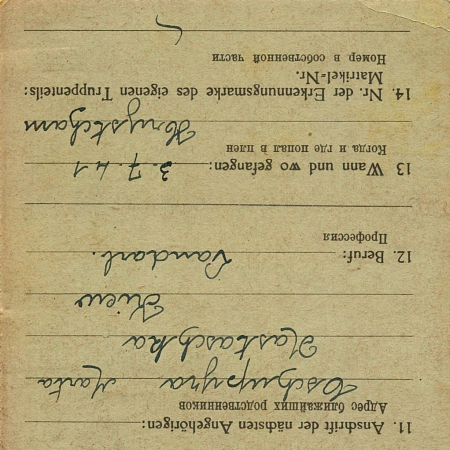 11. Anschrift der nächsten Angehörigen:
Адрес ближайших родственников
Marta
Kastaschka
Kiew
12. Beruf: Landarb.
Профессия
13 Wann und wo gefangen: 3.7.41
Когда и где попал в плен
14. Nr. der Erkennungsmarke des eigenen Truppenteils:
Matrikel-Nr.
Номер в собственной части